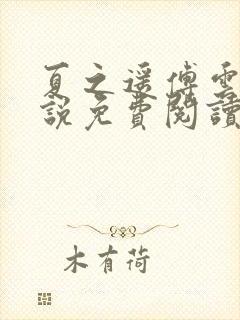 夏之遥傅雲
說免費閱讀
木有荷